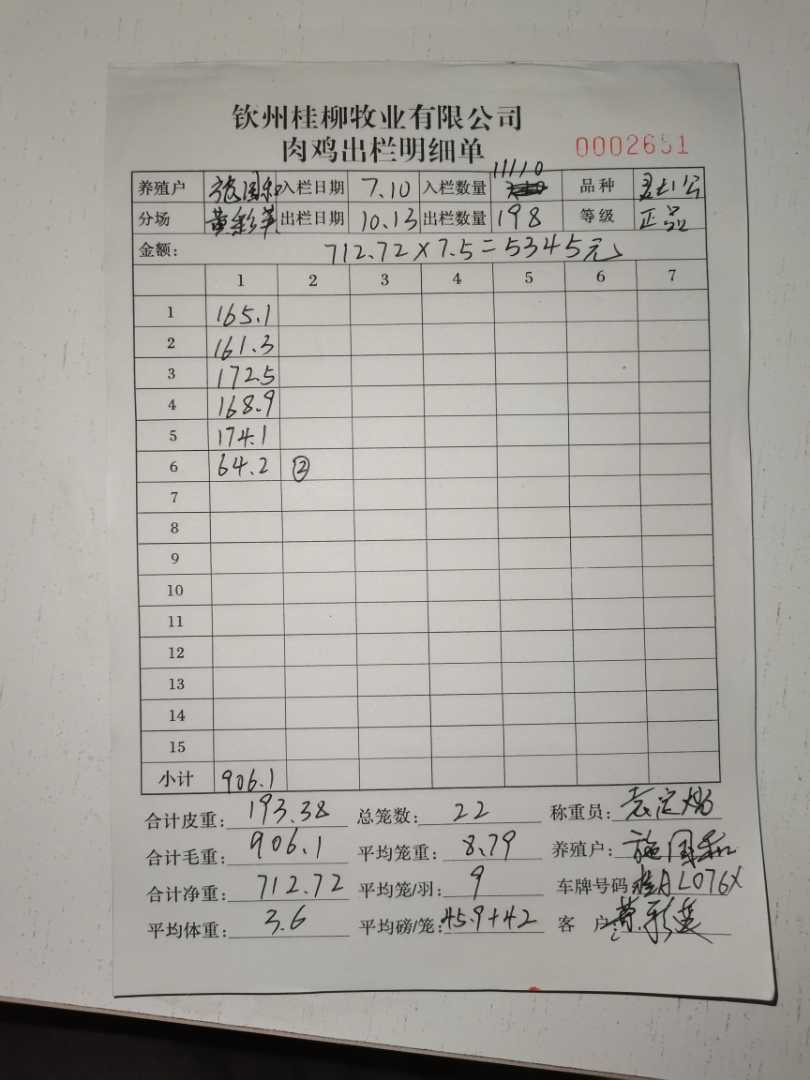 钦州桂柳牧业有限公司
肉鸡出栏明细单 0002651
11110
养殖户 施国和 入栏日期 7.10 入栏数量 品种
分场 黄彩莲 出栏日期 10.13 出栏数量 198 等级 正品
金额: 712.72×7.5=5345元
1 2 3 4 5 6 7
1 165.1
2 161.3
3 172.5
4 168.9
5 174.1
6 64.2 ②
7
8
9
10
11
12
13
14
15
小计 906.1
合计皮重: 193.38 总笼数: 22 称重员:
合计毛重: 906.1 平均笼重: 8.79 养殖户: 施国和
合计净重: 712.72 平均笼/羽: 9 车牌号码 桂AL076X
平均体重: 3.6 平均磅/笼: 45.9+42 客 户: 黄彩莲